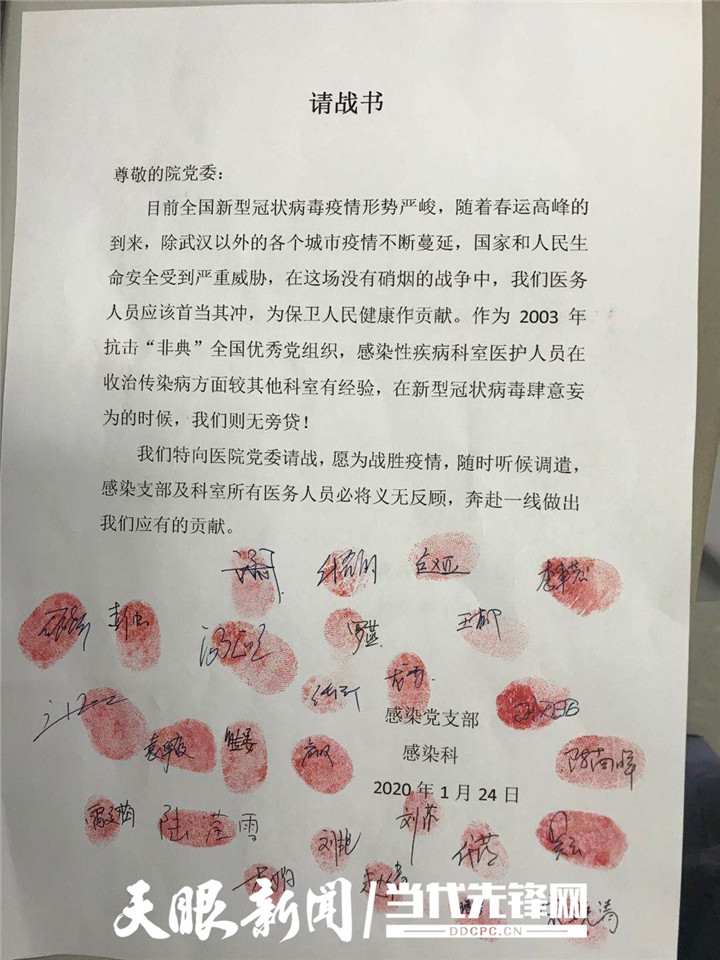 请战书
尊敬的院党委：
目前全国新型冠状病毒疫情形势严峻，随着春运高峰的
到来，除武汉以外的各个城市疫情不断蔓延，国家和人民生
命安全受到严重威胁，在这场没有硝烟的战争中，我们医务
人员应该首当其冲，为保卫人民健康作贡献。作为 2003 年
抗击“非典”全国优秀党组织，感染性疾病科室医护人员在
收治传染病方面较其他科室有经验，在新型冠状病毒肆意妄
为的时候，我们则无旁贷！
我们特向医院党委请战，愿为战胜疫情，随时听候调遣，
感染支部及科室所有医务人员必将义无反顾，奔赴一线做出
我们应有的贡献。
罗燕
王郁
感染党支部
感染科
2020 年 1 月 24 日
陆滢雪
刘艳
刘苏
天眼新闻/当代先锋网
DDCPC.CN